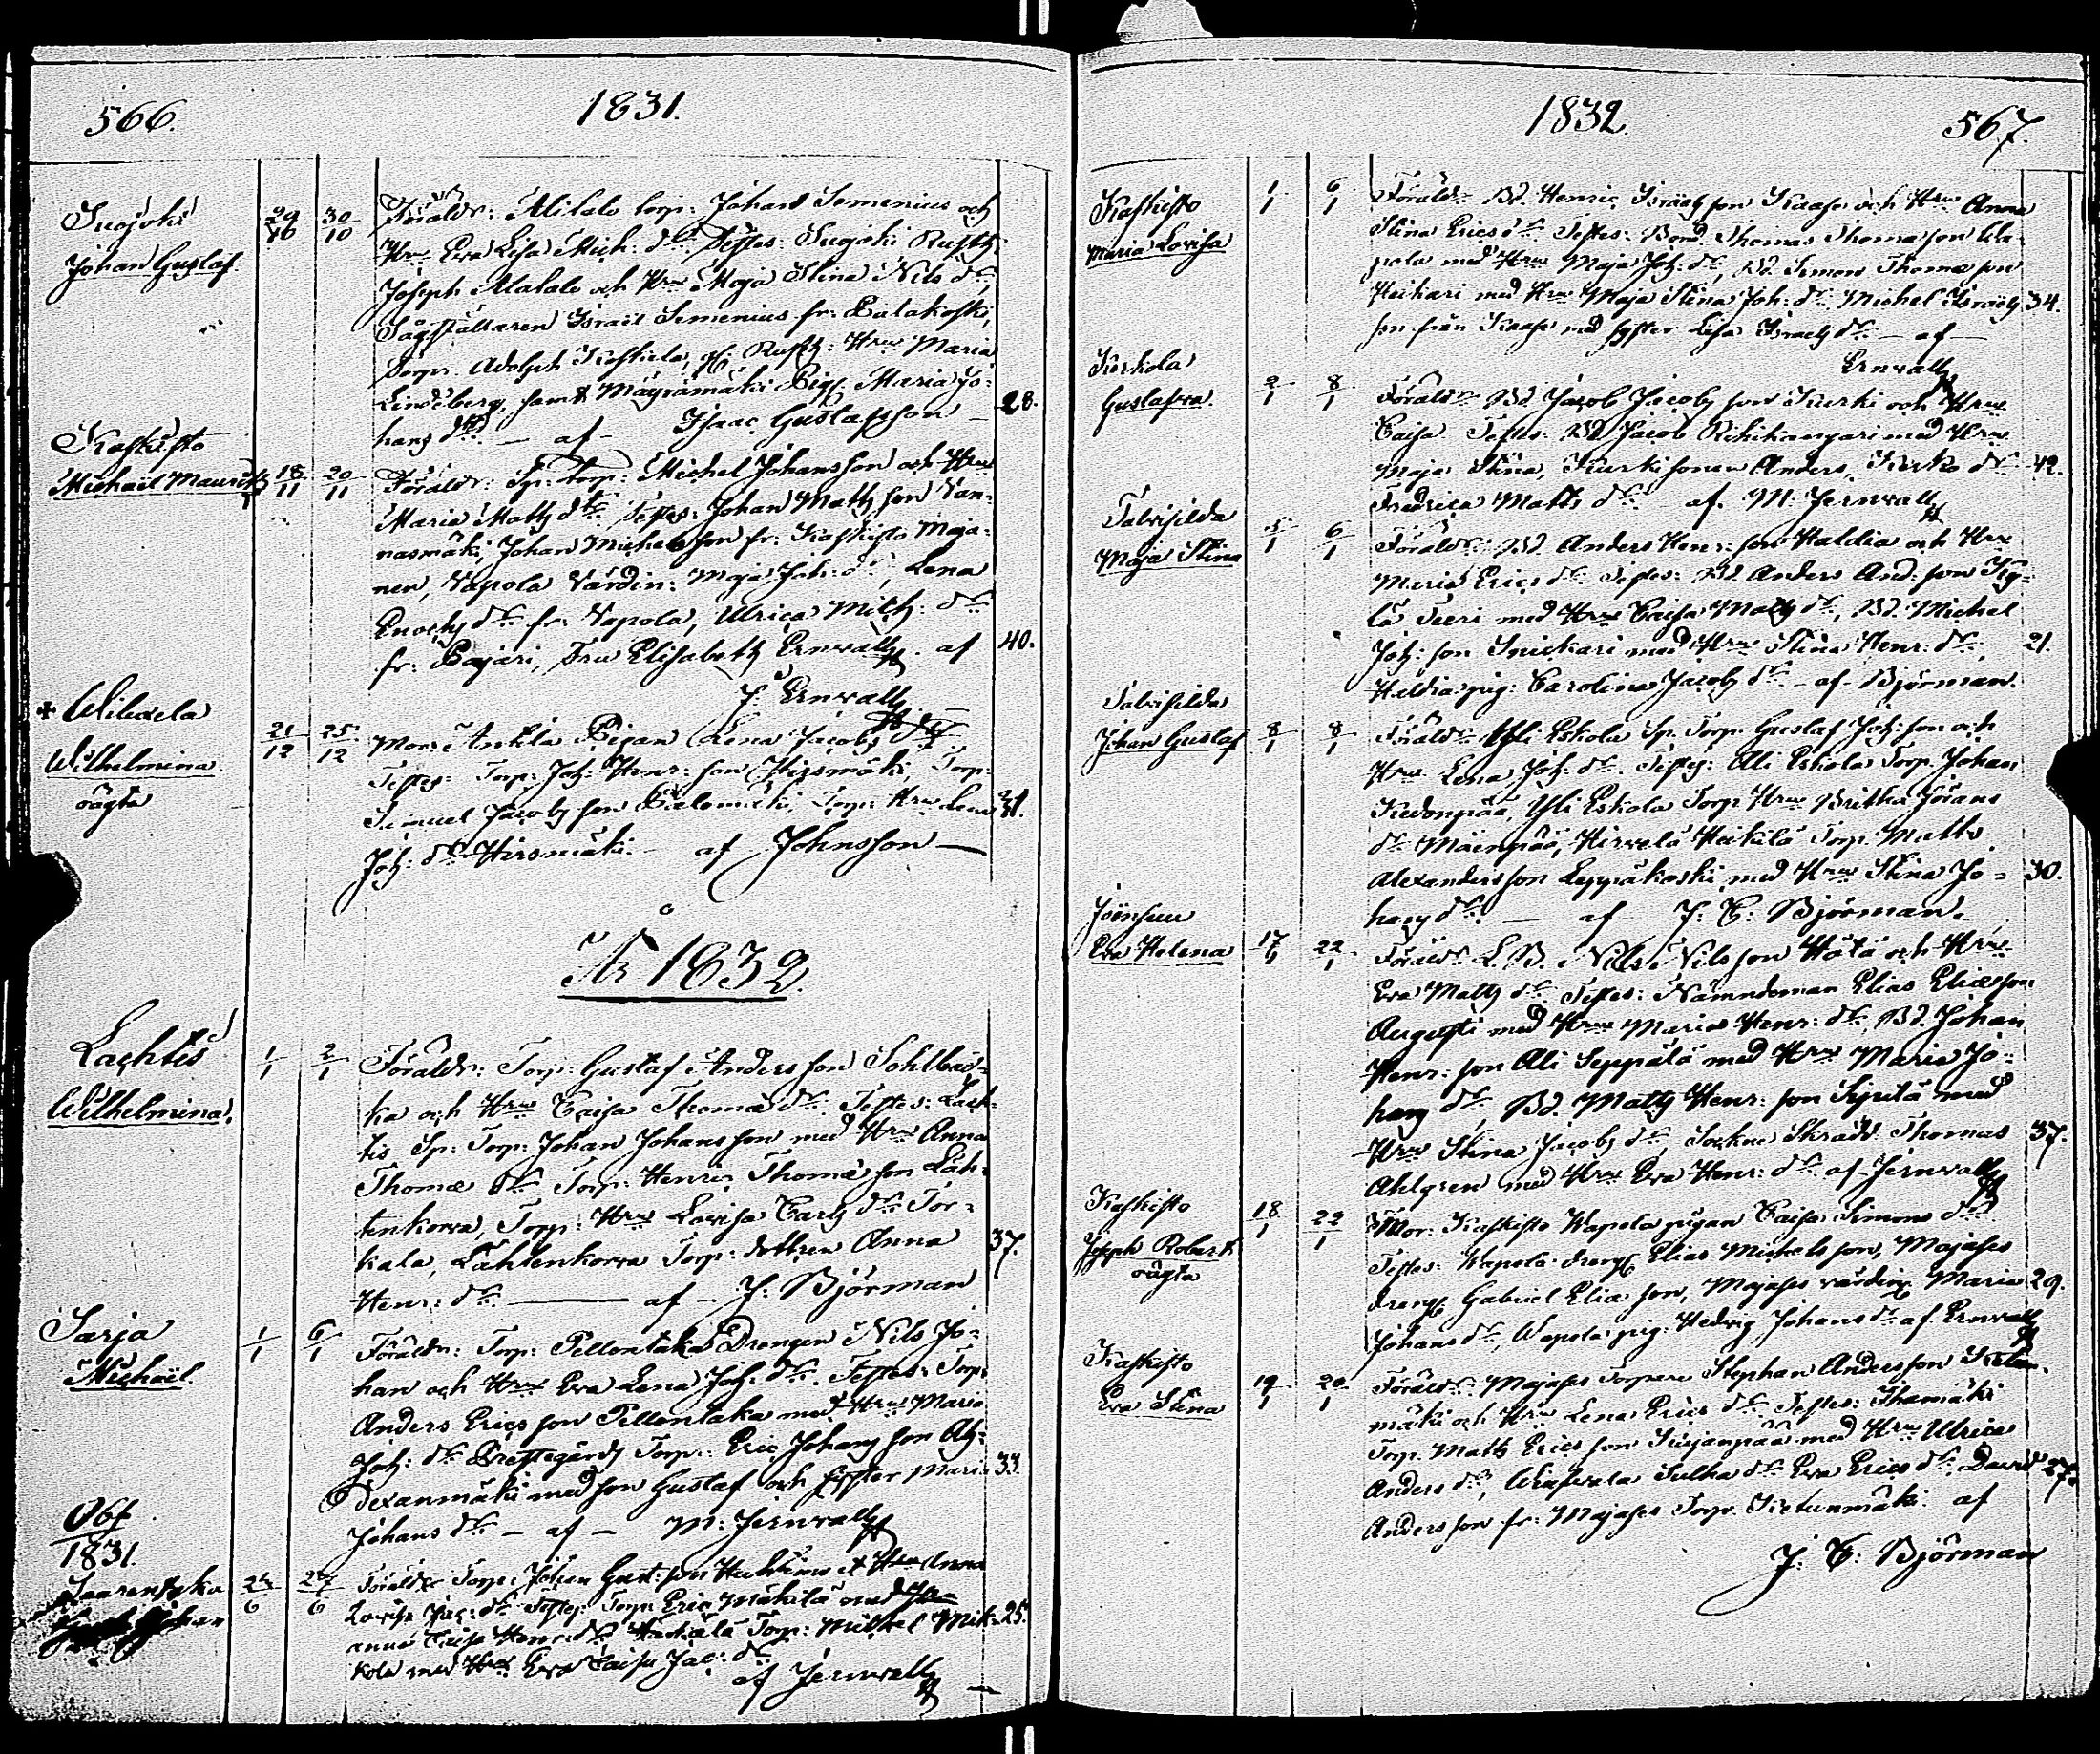 566.
1831.
Suojoki
Johan Gustaf
29/10 30/10
Föräldr: Alitalo torp: Johan Semenius och
Hru Eva Lisa Mich: dr. Testes: Suojoki Rusth:
Joseph Alatalo och Hru Maja Stina Nils dr,
Sågställaren Israel Semenius fr: Palakoski,
Sorgr: Adolph Koskela, Rusth: Hru Maria
Lindeberg, samt Mäyrämäki Pig: Maria Jo-
hans dr. — af — Isaac Gustafsson — 28.
Kaskisto
Michaël Mauritz
18/11 20/11
Föräldr: Sp: torp: Michel Johansson och Hru
Maria Matts dr. Testes: Johan Matts son Van-
nasmäki, Johan Michelsson fr: Kaskisto Maja-
nen, Vapola Värdin: Maja Joh: dr, Lena
Enochs dr fr: Vapola, Ulrica Mich: dr
fr: Pajari, Fru Elisabeth Ernvall. af 40.
J. Ernvall
+ Wilaela
Wilhelmina
oägta
21/12 25/12
Mor: Ankla Pigan Lena Jacobs dr
Testes: Torp: Joh: Henr: son Hirsmäki, Torp:
Samuel Jacobs son Palomäki, Torp: Hru Lena 31.
Joh: dr Hirsmäki — af Johnsson —
År 1832.
Lachtis
Wilhelmina
1/1 2/1
Föräldr: Torp: Gustaf Anders son Sohlbac-
ka och Hru Caisa Thomæ dr. Testes: Lach-
tis Sp: Torp: Johan Johans son med Hru Anna
Thomæ dr Torp: Henric Thomæ son Läh-
tenkorva, Torp: Hru Lovisa Carls dr Tor-
kala, Lähtenkorva Torp: dottren Anna 37.
Henr: dr. — af — J. Björman
Sarja
Michaël
1/1 6/1
Föräldr: Torp: Pellontaka Drengen Nils Jo-
han och Hru Eva Lena Joh: dr. Testes: Torp:
Anders Erics son Pellontaka med Hru Maria
Joh: dr Prestegårds Torp: Eric Johans son Ah-
dexanmäki med son Gustaf och syster Maria 33.
Johans dr — af — M: Jernvall
Obs
1831.
24/6 27/6
Föräldr Torp: Johan Gust: son et Hru Anna
Lovisa Jac: dr Testes: Torp: Eric Mäkilä med
anna Caisa Henr: dr Torp: Michel Mik- 25.
kola med Hru Eva Caisa Jac: dr
af Jernvall
1832.
567.
Kaskisto
Maria Lovisa
1/1 6/1
Föräldr: Bd. Henric Israels son Kaase och Hru Anna
Stina Erics dr. Testes: Bond. Thomas Thomæ son Wa-
pola med Hru Maja Joh: dr, Bd. Simon Thomæ son
Heikari med Hru Maja Stina Joh: dr. Michel Israels 34.
son från Kaase med syster Lisa Israels dr — af —
Ernvall
Kierkola
Gustafva
2/1 8/1
Föräldr: Bd Jacob Jacobs son Kurki och Hru
Caisa. Testes: Bd Jacob Rihikangari med Hru
Maja Stina, Kurki sonen Anders, Kurko dr 42.
Fredrica Matts dr — af. M. Jernvall
Talvisilda
Maja Stina
5/1 6/1
Föräldr: Bd. Anders Henr: son Haldia och Hru
Maria Erics dr. Testes: Bd. Anders And: son Ky-
lä Seeri med Hru Caisa Matts dr, Bd. Michel
Joh: son Snickari med Hru Stina Henr: dr, 21.
Haldia pig: Carolina Jacobs dr. — af — Björman.
Talvisilda
Johan Gustaf
8/1 8/1
Föräldr: Yli Eskola Sp. Torp. Gustaf Joh: son och
Hru Lena Joh: dr. Testes: Ali Eskola Torp. Johan
Kedonpää, Yli Eskola Torp Hru Britha Jörans
dr Mäenpää, Hirvelä Heikilä Torp. Matts
Alexanders son Leppäkoski med Hru Stina Jo- 30.
hans dr. — af J. E. Björman.
Joensuu
Eva Helena
17/1 22/1
Föräldr L. B. Nils Nils son Hölä och Hru
Eva Matts dr. Testes: Nämndeman Elias Eliæ son
Augusti med Hru Maria Henr: dr, Bd. Johan
Henr: son Ali Seppälä med Hru Maria Jo-
hans dr, Bd. Matts Henr: son Syrilä med
Hru Stina Jacobs dr, Socken Skrädd. Thomas 37.
Ahlgren med Hru Eva Henr: dr af Jernvall
Kaskisto
Joseph Robert
oägta
18/1 22/1
Mor: Kaskisto Wapola pigan Caisa Simons dr
Testes: Wapola dreng Elias Michels son, Majases
dreng Gabriel Eliæ son, Majases värdin Maria 29.
Johans dr, Wapola pig: Hedvig Johans dr af. Ernvall
Kaskisto
Eva Stina
19/1 20/1
Föräldr: Majases Torparn Stephan Andersson Kietun-
mäki och Hru Lena Erics dr Testes: Ihamäki
Torp. Matts Erics son Kujanpää med Hru Ulrica
Anders dr, Eva Erics dr, David 27.
Anders son fr: Majases Torp. Kietunmäki. af
J. E. Björman